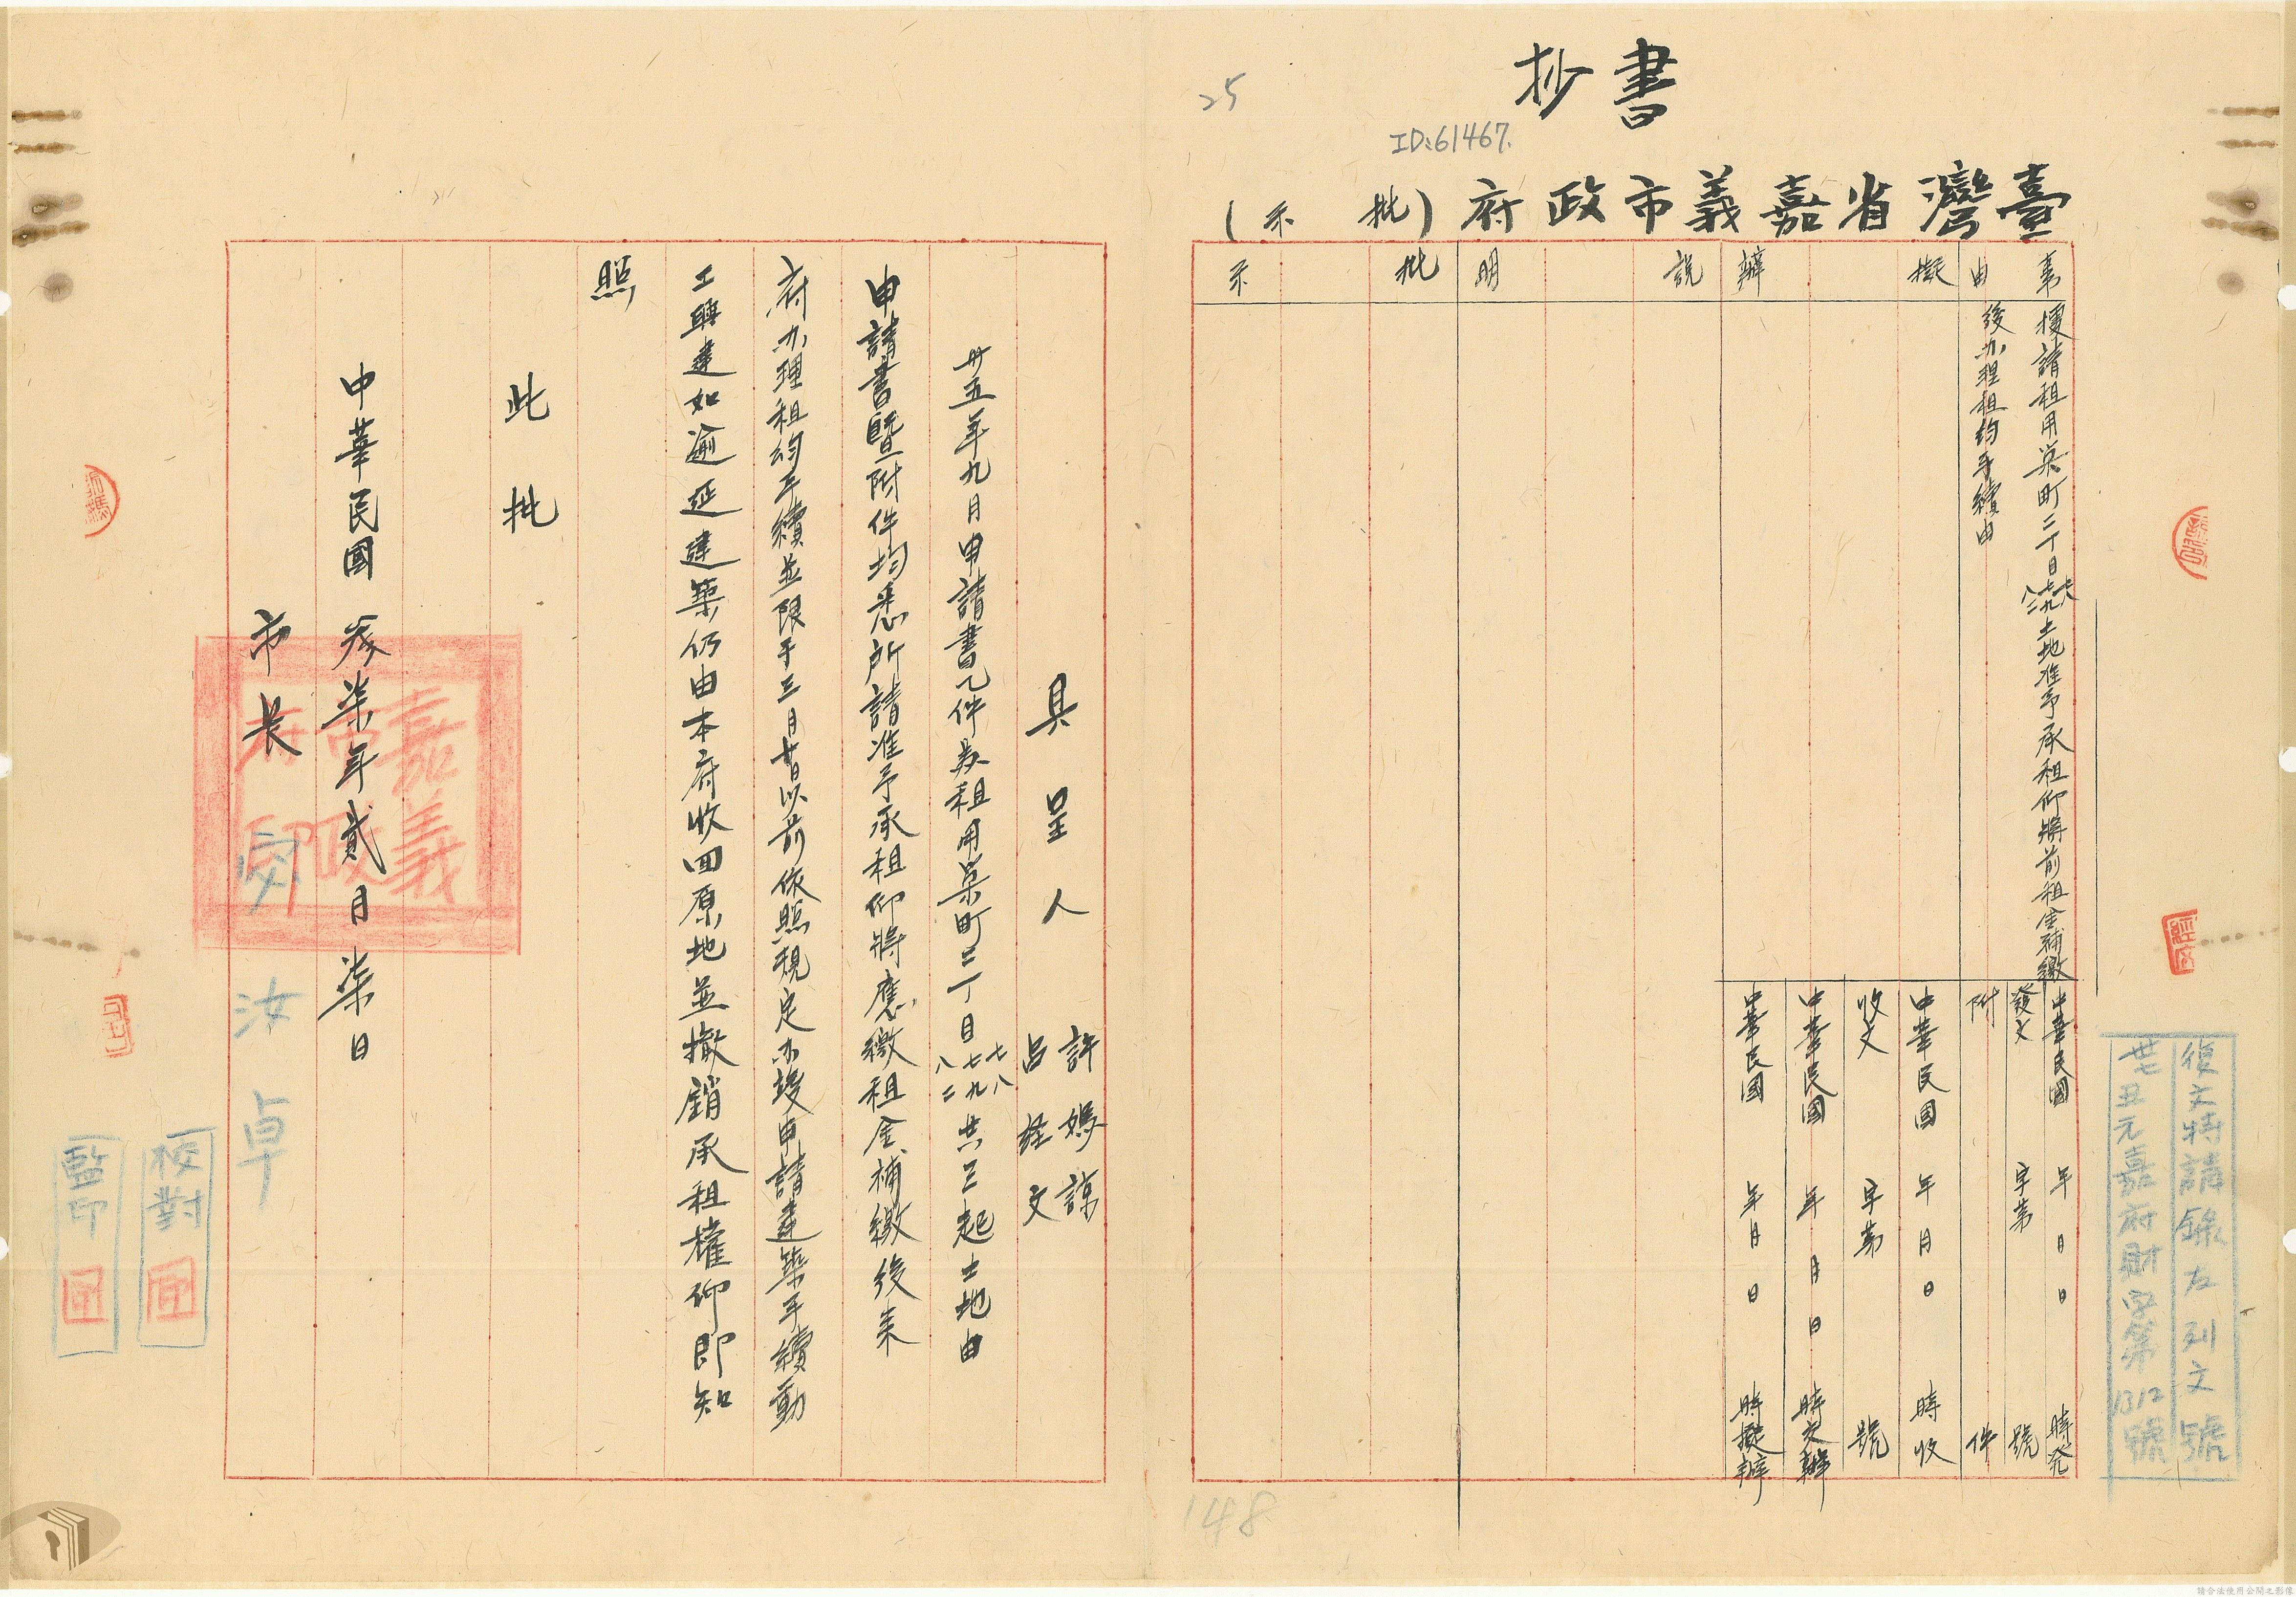 抄書
25
ID:61467.
臺灣省嘉義市政府(批示)
事由
擬辦
說明
批示
據請租用英町三丁目七八七九八二土地准予承租仰將前租金補繳
後办理租約手續由
中華民國 年 月 日 時発
發文 字第 號
附 件
中華民國 年 月 日 時收
收文 字第 號
中華民國 年 月 日 時交辦
中華民國 年 月 日 時擬辦
復文時請錄左列文號
卅七丑元嘉府財字第1312號
148
具呈人 許媽諒
呂経文
卅五年九月申請書乙件為租用栄町三丁目七八七九八二共三起土地由
申請書暨附件均悉所請准予承租仰將應繳租金補繳後來
府办理租約手續並限于三月廿日以前依照規定办竣申請建築手續動
工興建如逾延建築仍由本府收回原地並撤銷承租權仰即知
照
此批
中華民國參柒年貳月柒日
市長 宓汝卓
嘉義市政府印
校對 [印]
監印 [印]
請合法使用公開之影像